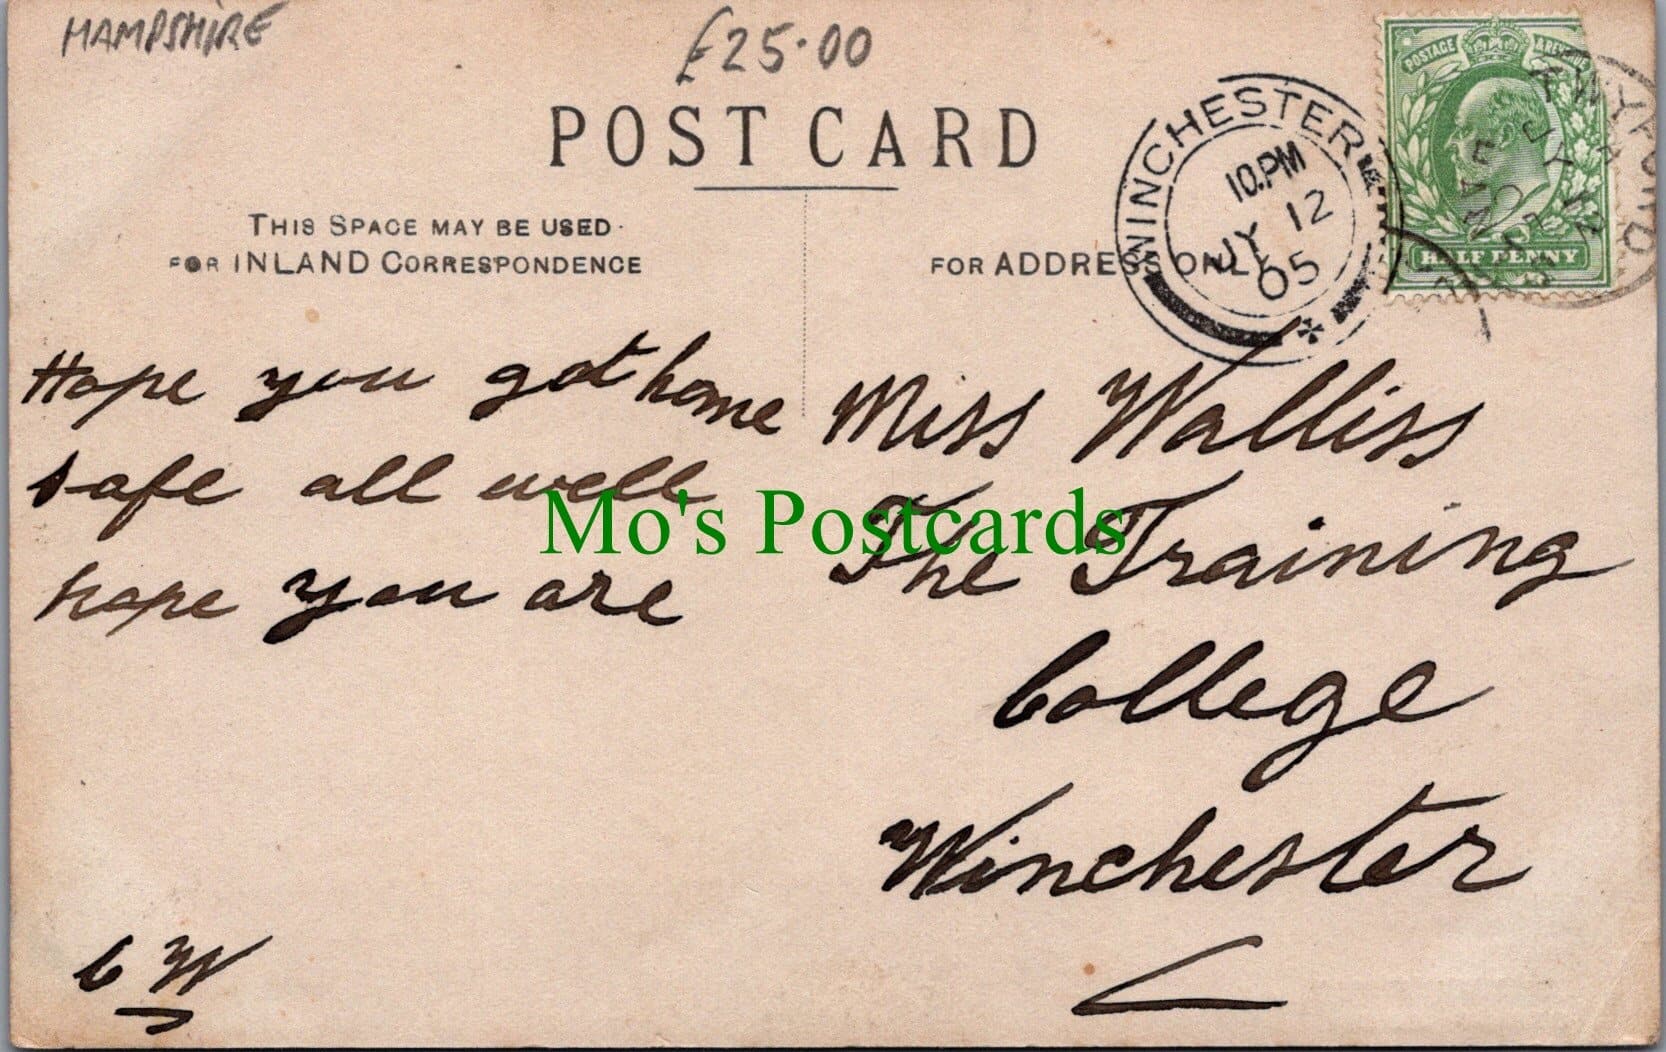 HAMPSHIRE
£25.00
POST CARD
THIS SPACE MAY BE USED
FOR INLAND CORRESPONDENCE
FOR ADDRESS ONLY
WINCHESTER
10.PM
JY 12
05
POSTAGE & REVENUE
HALF PENNY
TWYFORD
JY 12
05
Hope you got home
safe all well
hope you are
C W
Miss Walliss
The Training
College
Winchester
Mo's Postcards